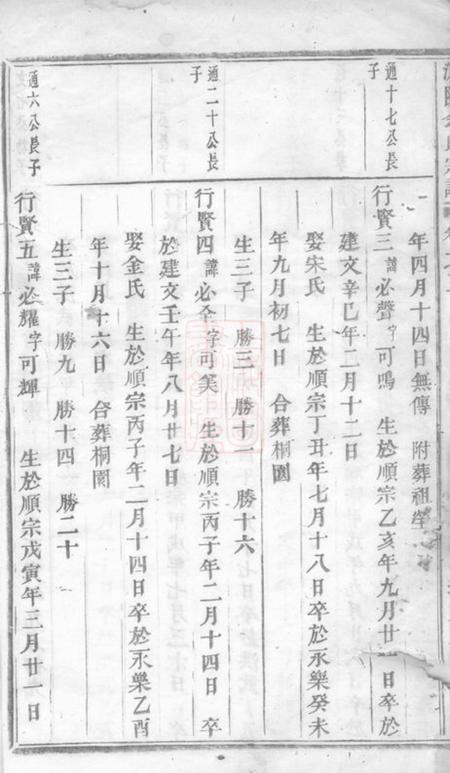 年四月十四日無傳 附葬祖塋
通十七公長子
行賢三諱必聲字可鳴 生於順宗乙亥年九月廿 日卒於
建文辛巳年二月十二日
娶宋氏 生於順宗丁丑年七月十八日卒於永樂癸未
年九月初七日 合葬桐園
生三子 勝三 勝十一 勝十六
通二十公長子
行賢四諱必全字可美 生於順宗丙子年二月十四日 卒
於建文壬午年八月廿七日
娶金氏 生於順宗丙子年二月十四日卒於永樂乙酉
年十月十六日 合葬桐園
生三子 勝九 勝十四 勝二十
通六公長子
行賢五諱必耀字可輝 生於順宗戊寅年三月廿一日